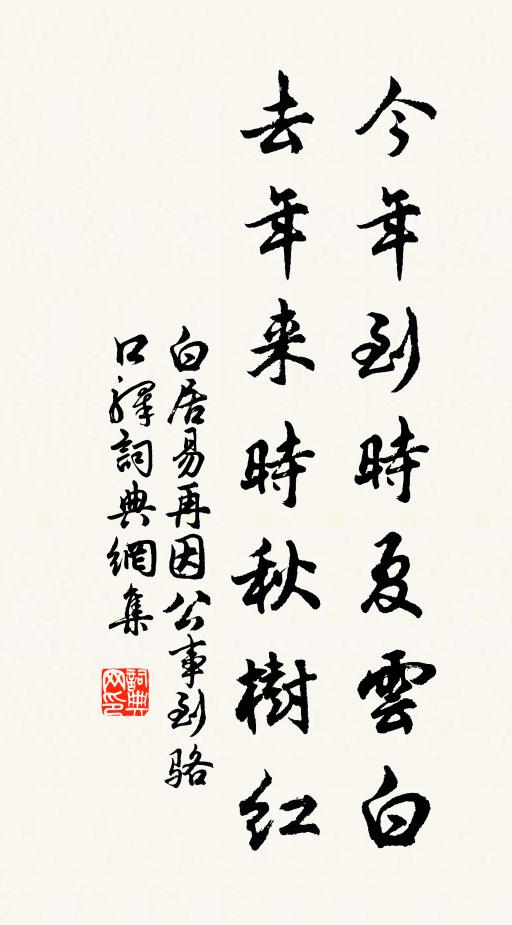 今年到時夏雲白
去年来時秋樹紅
白居易再因公事到骆
口驛詞典網集
詞典
网印